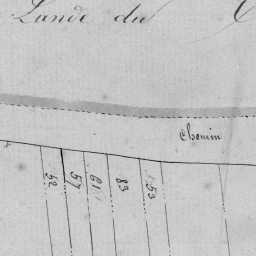 Lande du C
Chemin
52
57
61
83
53